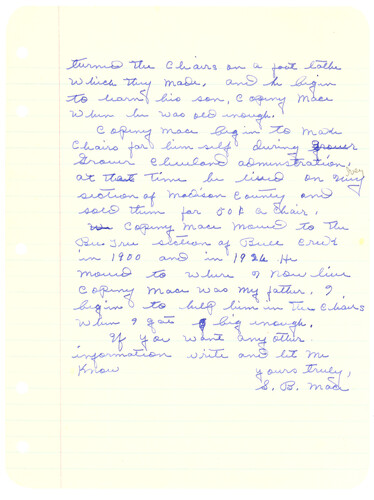 turned the Chairs on a foot lathe
Which they made, and he begin
to learn his son, Copiny Mace
When he was old enough.
Copiny Mace begin to make
Chairs for him self during
Grover Cleveland adminstration,
at that time he lived on
section of Madison County and
sold them for 50¢ a Chair,
Copiny Mace moved to the
section of Bull Creek
in 1900 and in 1924 He
moved to where I now live
Copiny Mace was my father. I
begin to help him in the Chairs
When I got big enough.
If you want any other
information write and let me
Know yours truly,
S. B. Mace